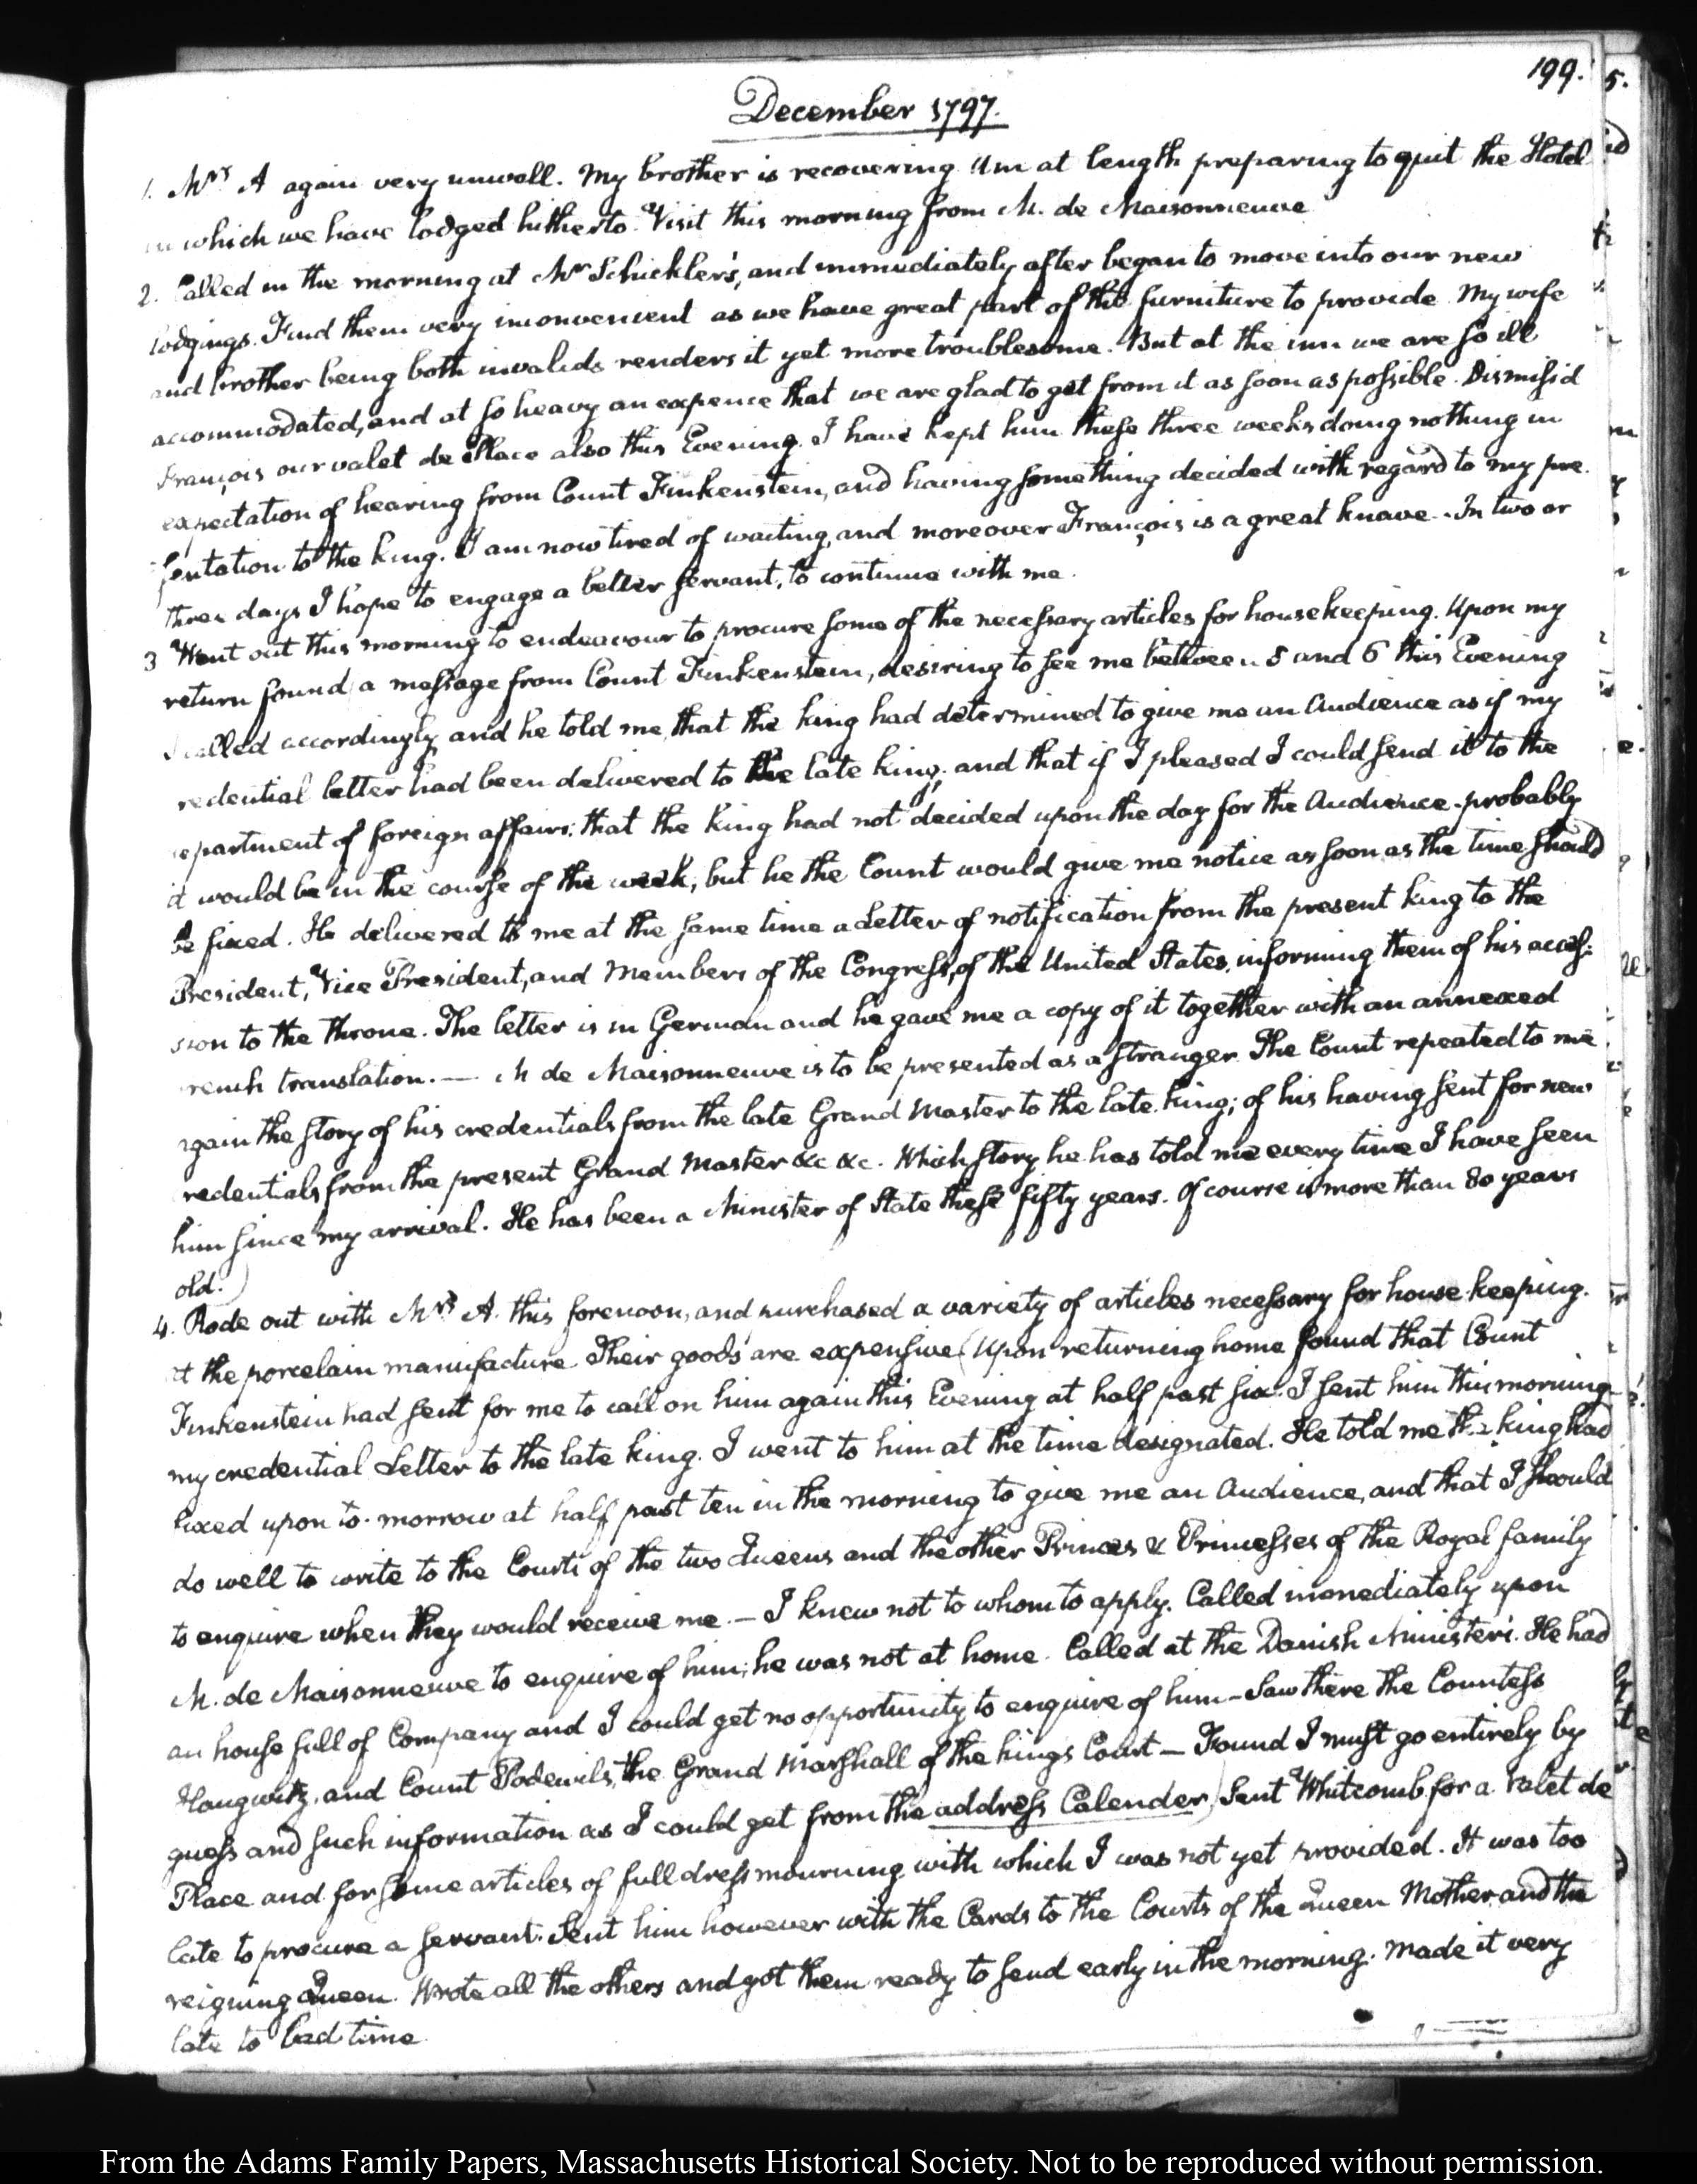 199.
December 1797.
1. Mrs A again very unwell. My brother is recovering am at length preparing to quit the Hotel
in which we have lodged hitherto. Visit this morning from M. de Maisonneuve
2. Called in the morning at Mr Schickler's, and immediately after began to move into our new
lodgings. Find them very inconvenient as we have great part of the furniture to provide. My wife
and brother being both invalids renders it yet more troublesome. But at the inn we are so ill
accommodated, and at so heavy an expence that we are glad to get from it as soon as possible. Dismiss'd
François our valet de Place also this Evening. I have kept him these three weeks doing nothing in
expectation of hearing from Count Finkenstein, and having something decided with regard to my pre-
sentation to the king. I am now tired of waiting, and moreover François is a great knave. In two or
three days I hope to engage a better servant, to continue with me.
3 Went out this morning to endeavour to procure some of the necessary articles for housekeeping. Upon my
return found a message from Count Finkenstein, desiring to see me between 5 and 6 this Evening
I called accordingly and he told me, that the king had determined to give me an Audience as if my
redential letter had been delivered to the late king; and that if I pleased I could send it to the
epartment of foreign affairs; that the King had not decided upon the day for the Audience. probably
it would be in the course of the week, but he the Count would give me notice as soon as the time should
be fixed. He delivered to me at the same time a Letter of notification from the present king to the
President, Vice President, and Members of the Congress, of the United States, informing them of his acces-
sion to the throne. The letter is in German and he gave me a copy of it together with an annexed
rench translation. — M de Maisonneuve is to be presented as a stranger. The Count repeated to me
again the story of his credentials from the late Grand Master to the late king; of his having sent for new
redentials from the present Grand Master &c &c. Which story he has told me every time I have seen
him since my arrival. He has been a Minister of State these fifty years. Of course is more than 80 years
old.)
4. Rode out with Mrs A. this forenoon, and purchased a variety of articles necessary for house-keeping.
at the porcelain manufacture. Their goods are expensive (Upon returning home found that Count
Finkenstein had sent for me to call on him again this Evening at half past six. I sent him this morning
my credential Letter to the late king. I went to him at the time designated. He told me the king had
fixed upon to-morrow at half past ten in the morning to give me an Audience, and that I should
do well to write to the Courts of the two Queens and the other Princes & Princesses of the Royal family
to enquire when they would receive me. — I knew not to whom to apply. Called immediately upon
M. de Maisonneuve to enquire of him; he was not at home. Called at the Danish Minister's. He had
an house full of Company and I could get no opportunity to enquire of him — Saw there the Countess
Haugwitz, and Count Podewils, the Grand Marshall of the kings Court — Found I must go entirely by
guess and such information as I could get from the address Calender) Sent Whitcomb for a Valet de
Place and for some articles of full dress mourning with which I was not yet provided. It was too
late to procure a servant. Sent him however with the Cards to the Courts of the Queen Mother and the
reigning Queen. Wrote all the others and got them ready to send early in the morning. Made it very
late to bed time
From the Adams Family Papers, Massachusetts Historical Society. Not to be reproduced without permission.